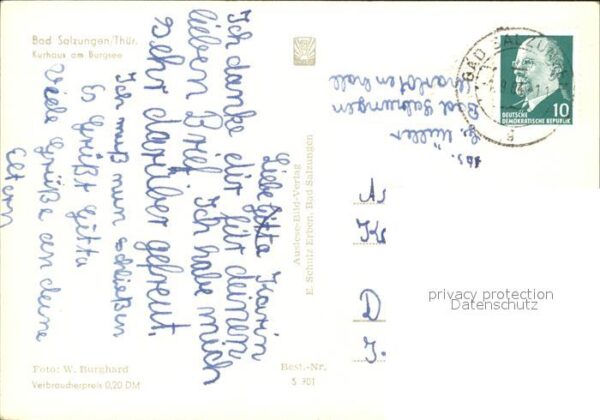 Bad Salzungen/Thür.
Kurhaus am Burgsee
Liebe Gitta Karin
Ich danke dir für deinen
lieben Brief. Ich habe mich
sehr darüber gefreut.
Ich muß nun schließen
Es Grüßt Gitta
Viele Grüße an deine
Eltern
Foto: W. Burghard
Verbraucherpreis 0,20 DM
Best.-Nr.
S 701
Auslese-Bild-Verlag
E. Schulz Erben, Bad Salzungen
Abs.
G. Müller
Bad Salzungen
BAD SALZUNGEN
10
DEUTSCHE
DEMOKRATISCHE REPUBLIK
A
K
D
J.
privacy protection
Datenschutz